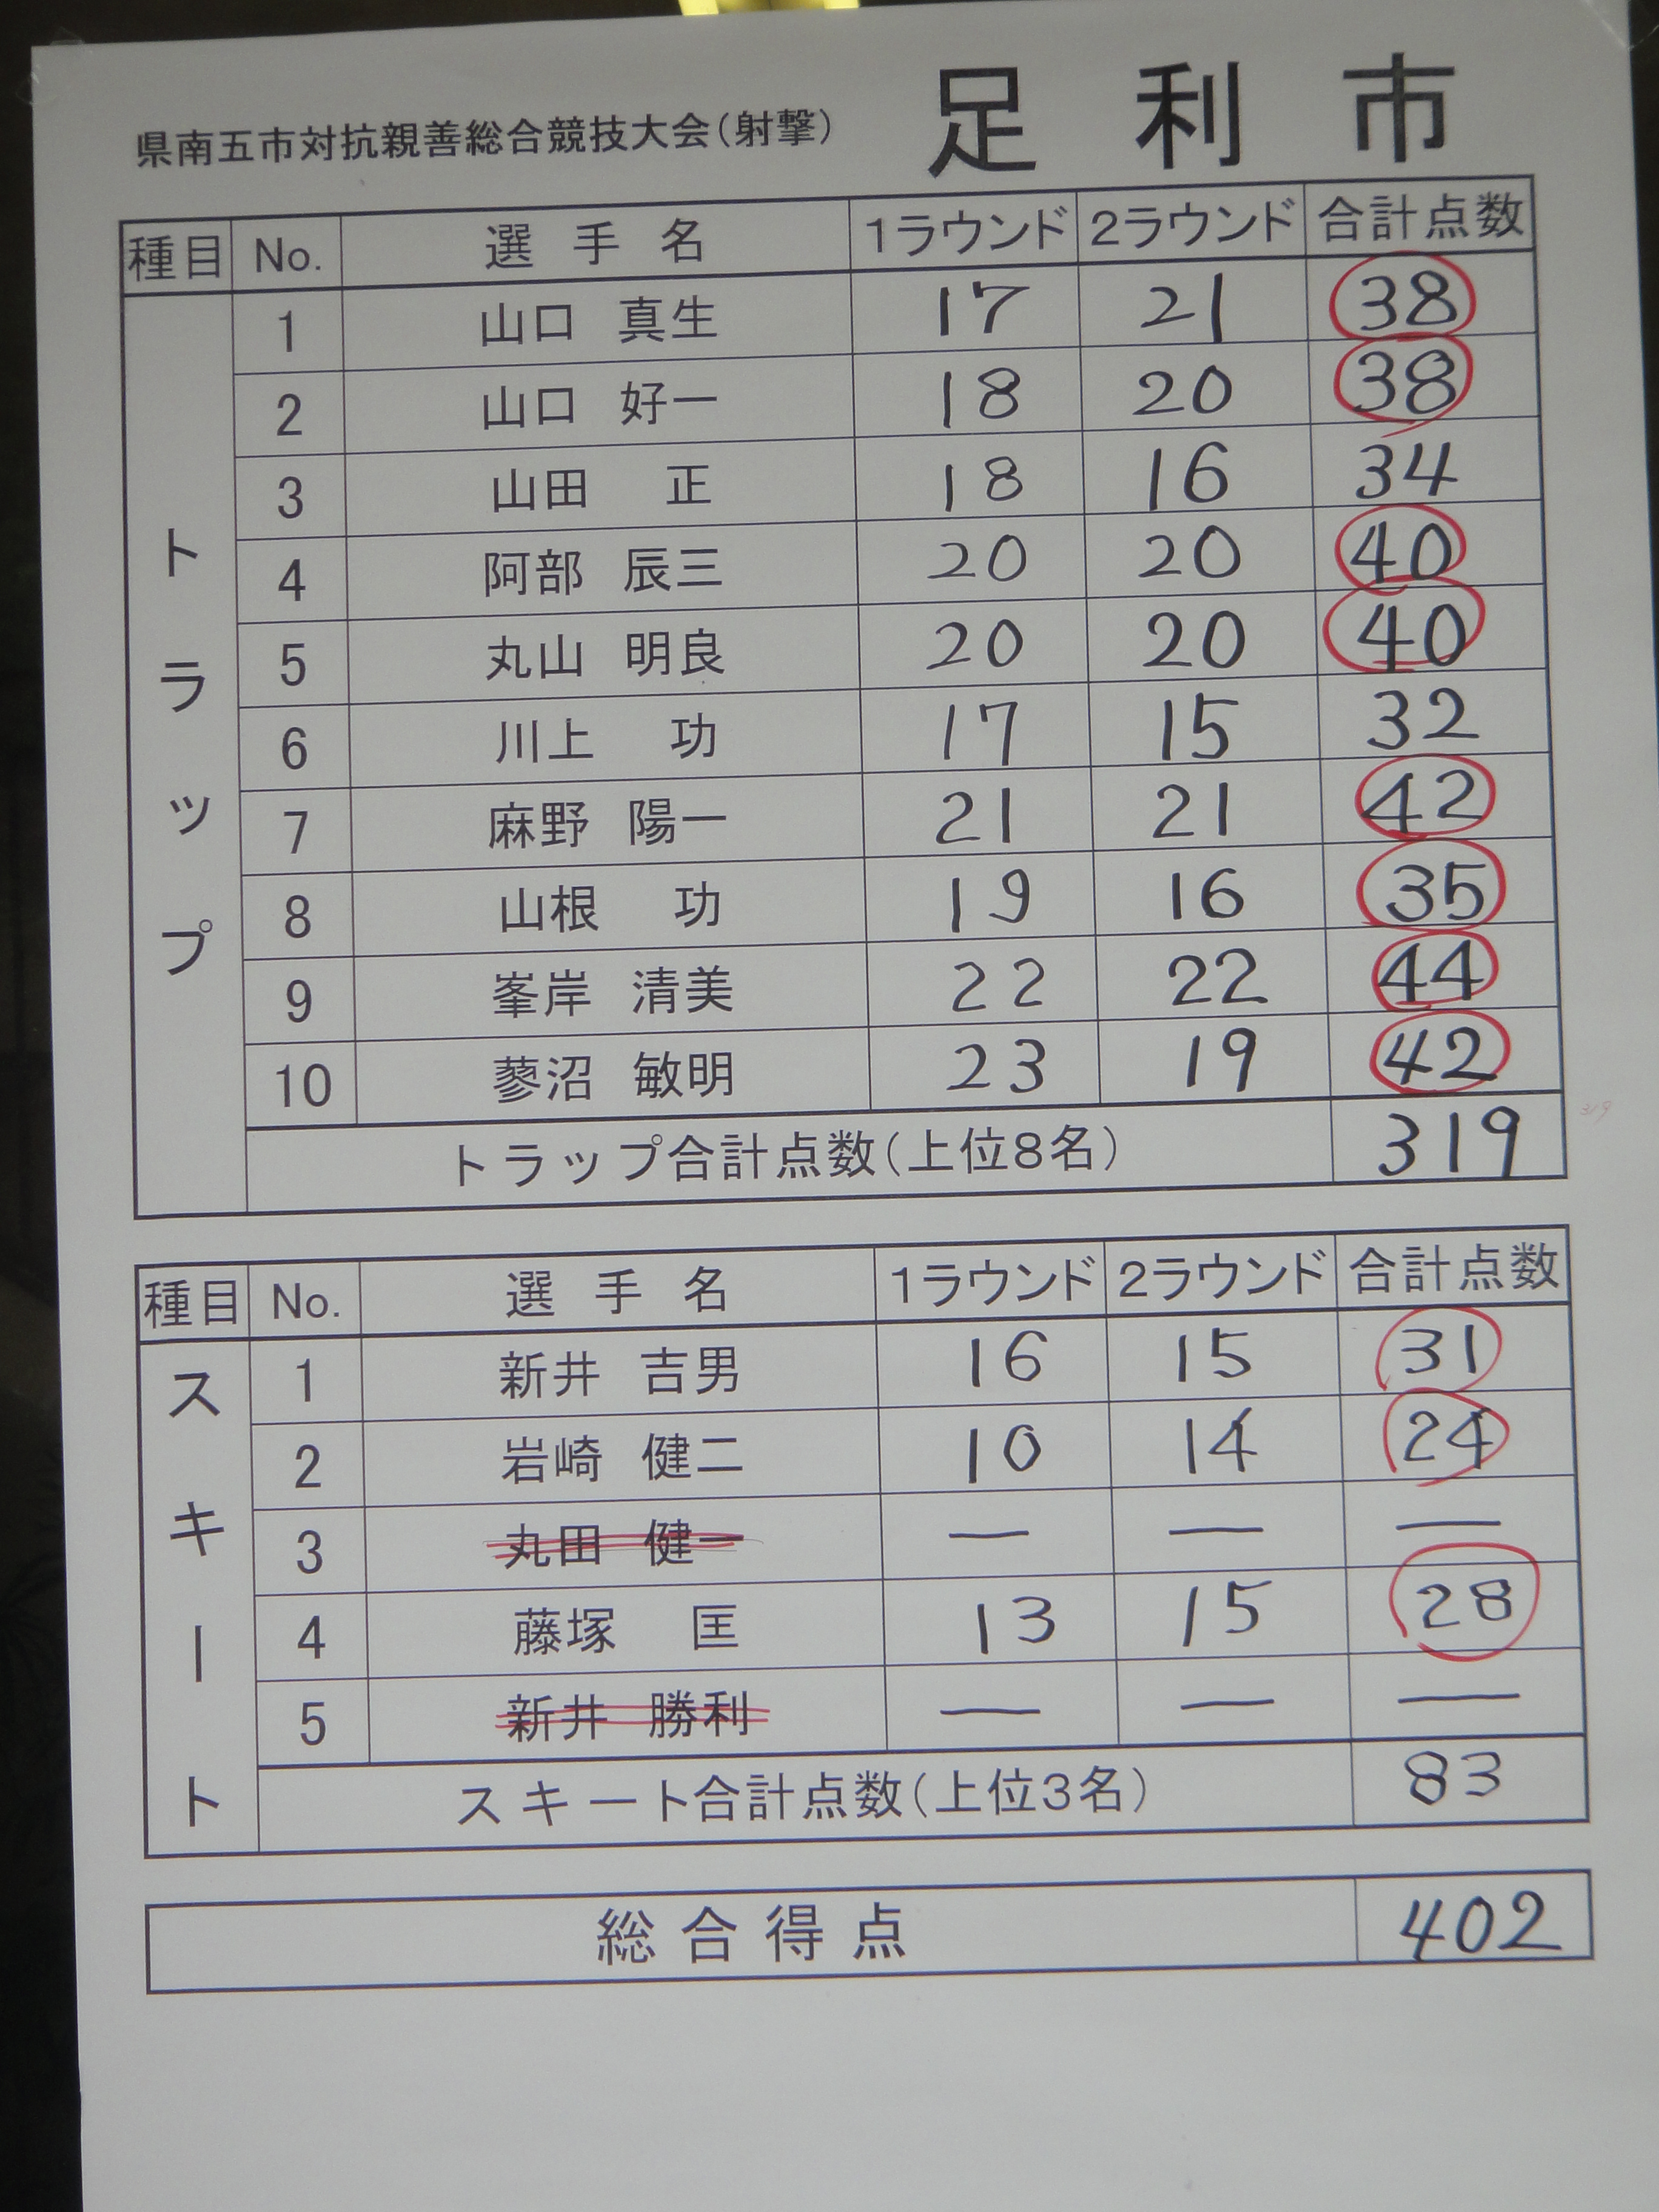 県南五市対抗親善総合競技大会(射撃) 足利市
種目 No. 選手名 1ラウンド 2ラウンド 合計点数
トラップ
1 山口 真生 17 21 38
2 山口 好一 18 20 38
3 山田 正 18 16 34
4 阿部 辰三 20 20 40
5 丸山 明良 20 20 40
6 川上 功 17 15 32
7 麻野 陽一 21 21 42
8 山根 功 19 16 35
9 峯岸 清美 22 22 44
10 蓼沼 敏明 23 19 42
トラップ合計点数(上位8名) 319
319
種目 No. 選手名 1ラウンド 2ラウンド 合計点数
スキート
1 新井 吉男 16 15 31
2 岩崎 健二 10 14 24
3 丸田 健一 — — —
4 藤塚 匡 13 15 28
5 新井 勝利 — — —
スキート合計点数(上位3名) 83
総合得点 402